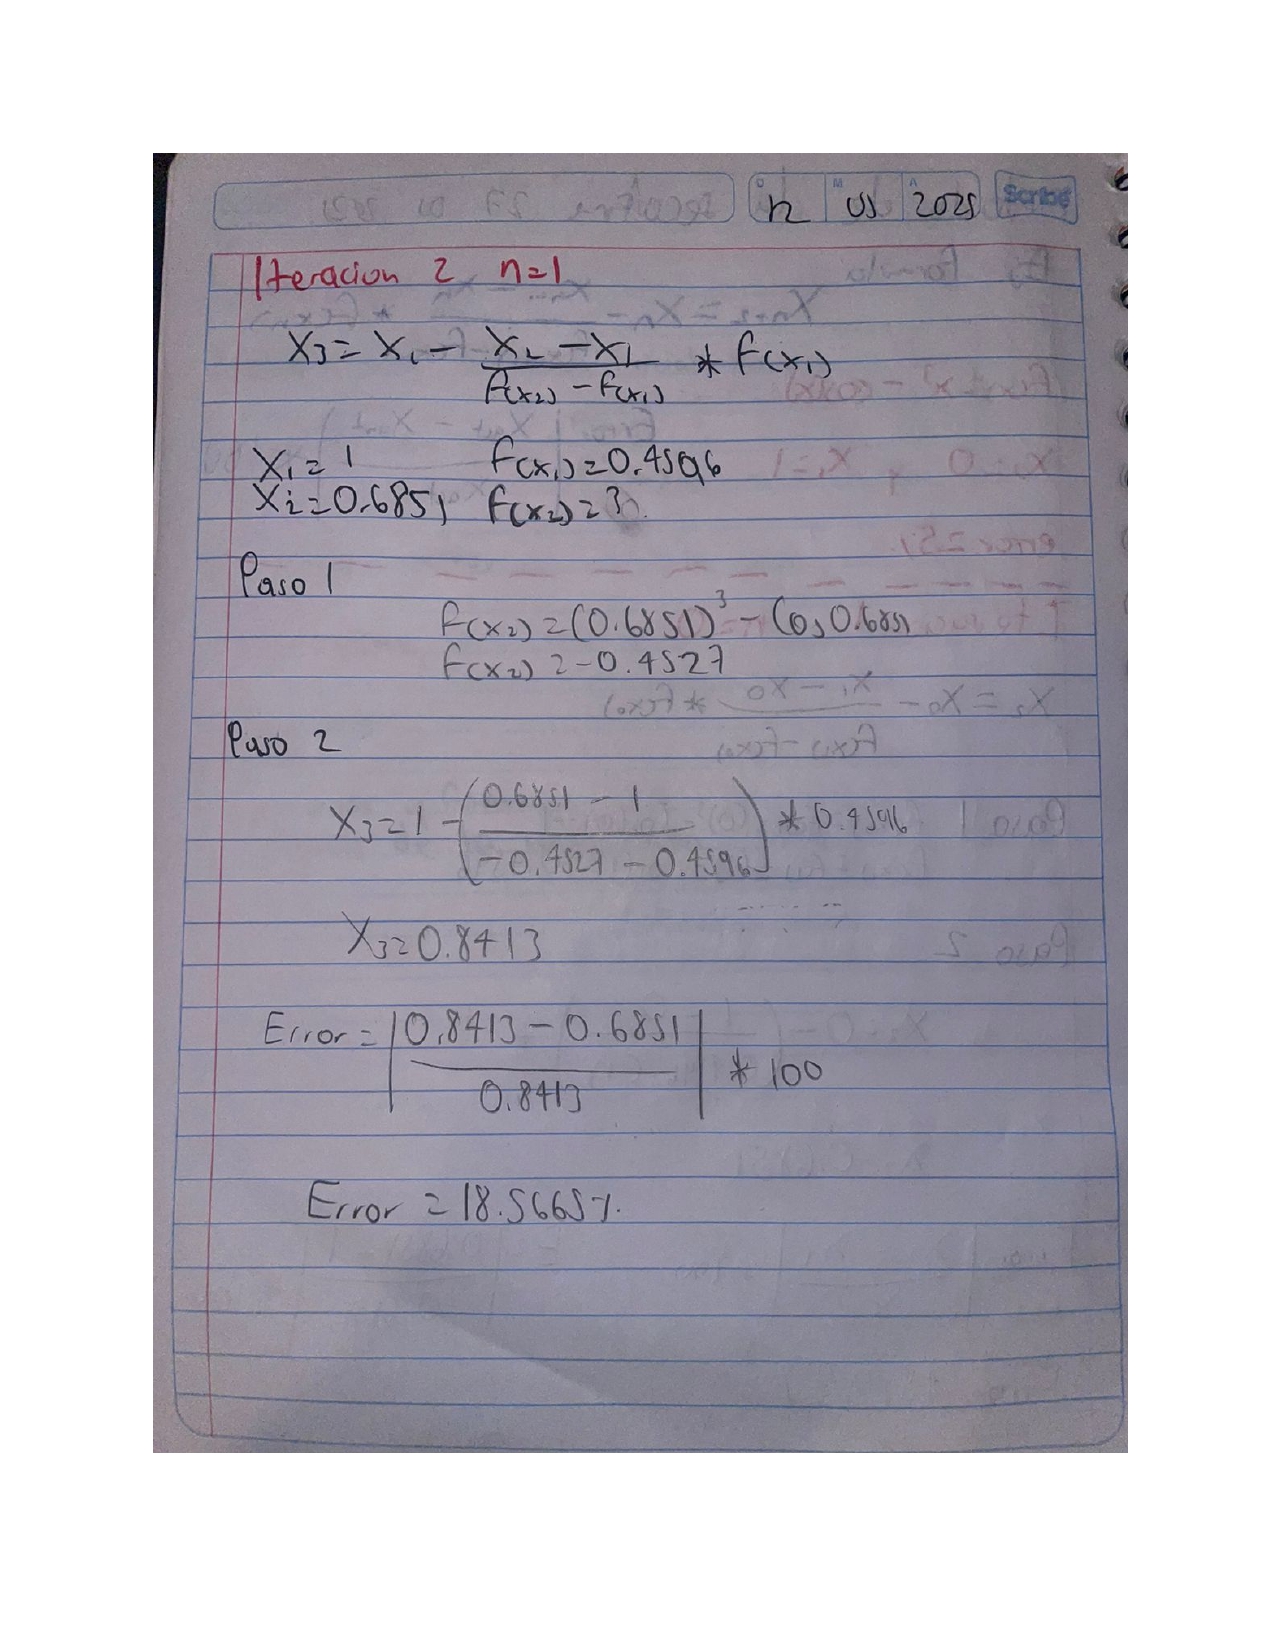 12 05 2025 Scribe
Iteracion 2 n=1
X3 = X1 - (X2 - X1)/(f(x2) - f(x1)) * f(x1)
X1 = 1 f(x1) = 0.4596
X2 = 0.6851 f(x2) = ?
Paso 1
f(x2) = (0.6851)³ - Cos 0.6851
f(x2) = -0.4527
Paso 2
X3 = 1 - ((0.6851 - 1)/(-0.4527 - 0.4596)) * 0.4596
X3 = 0.8413
Error = |(0.8413 - 0.6851)/0.8413| * 100
Error = 18.5665%.